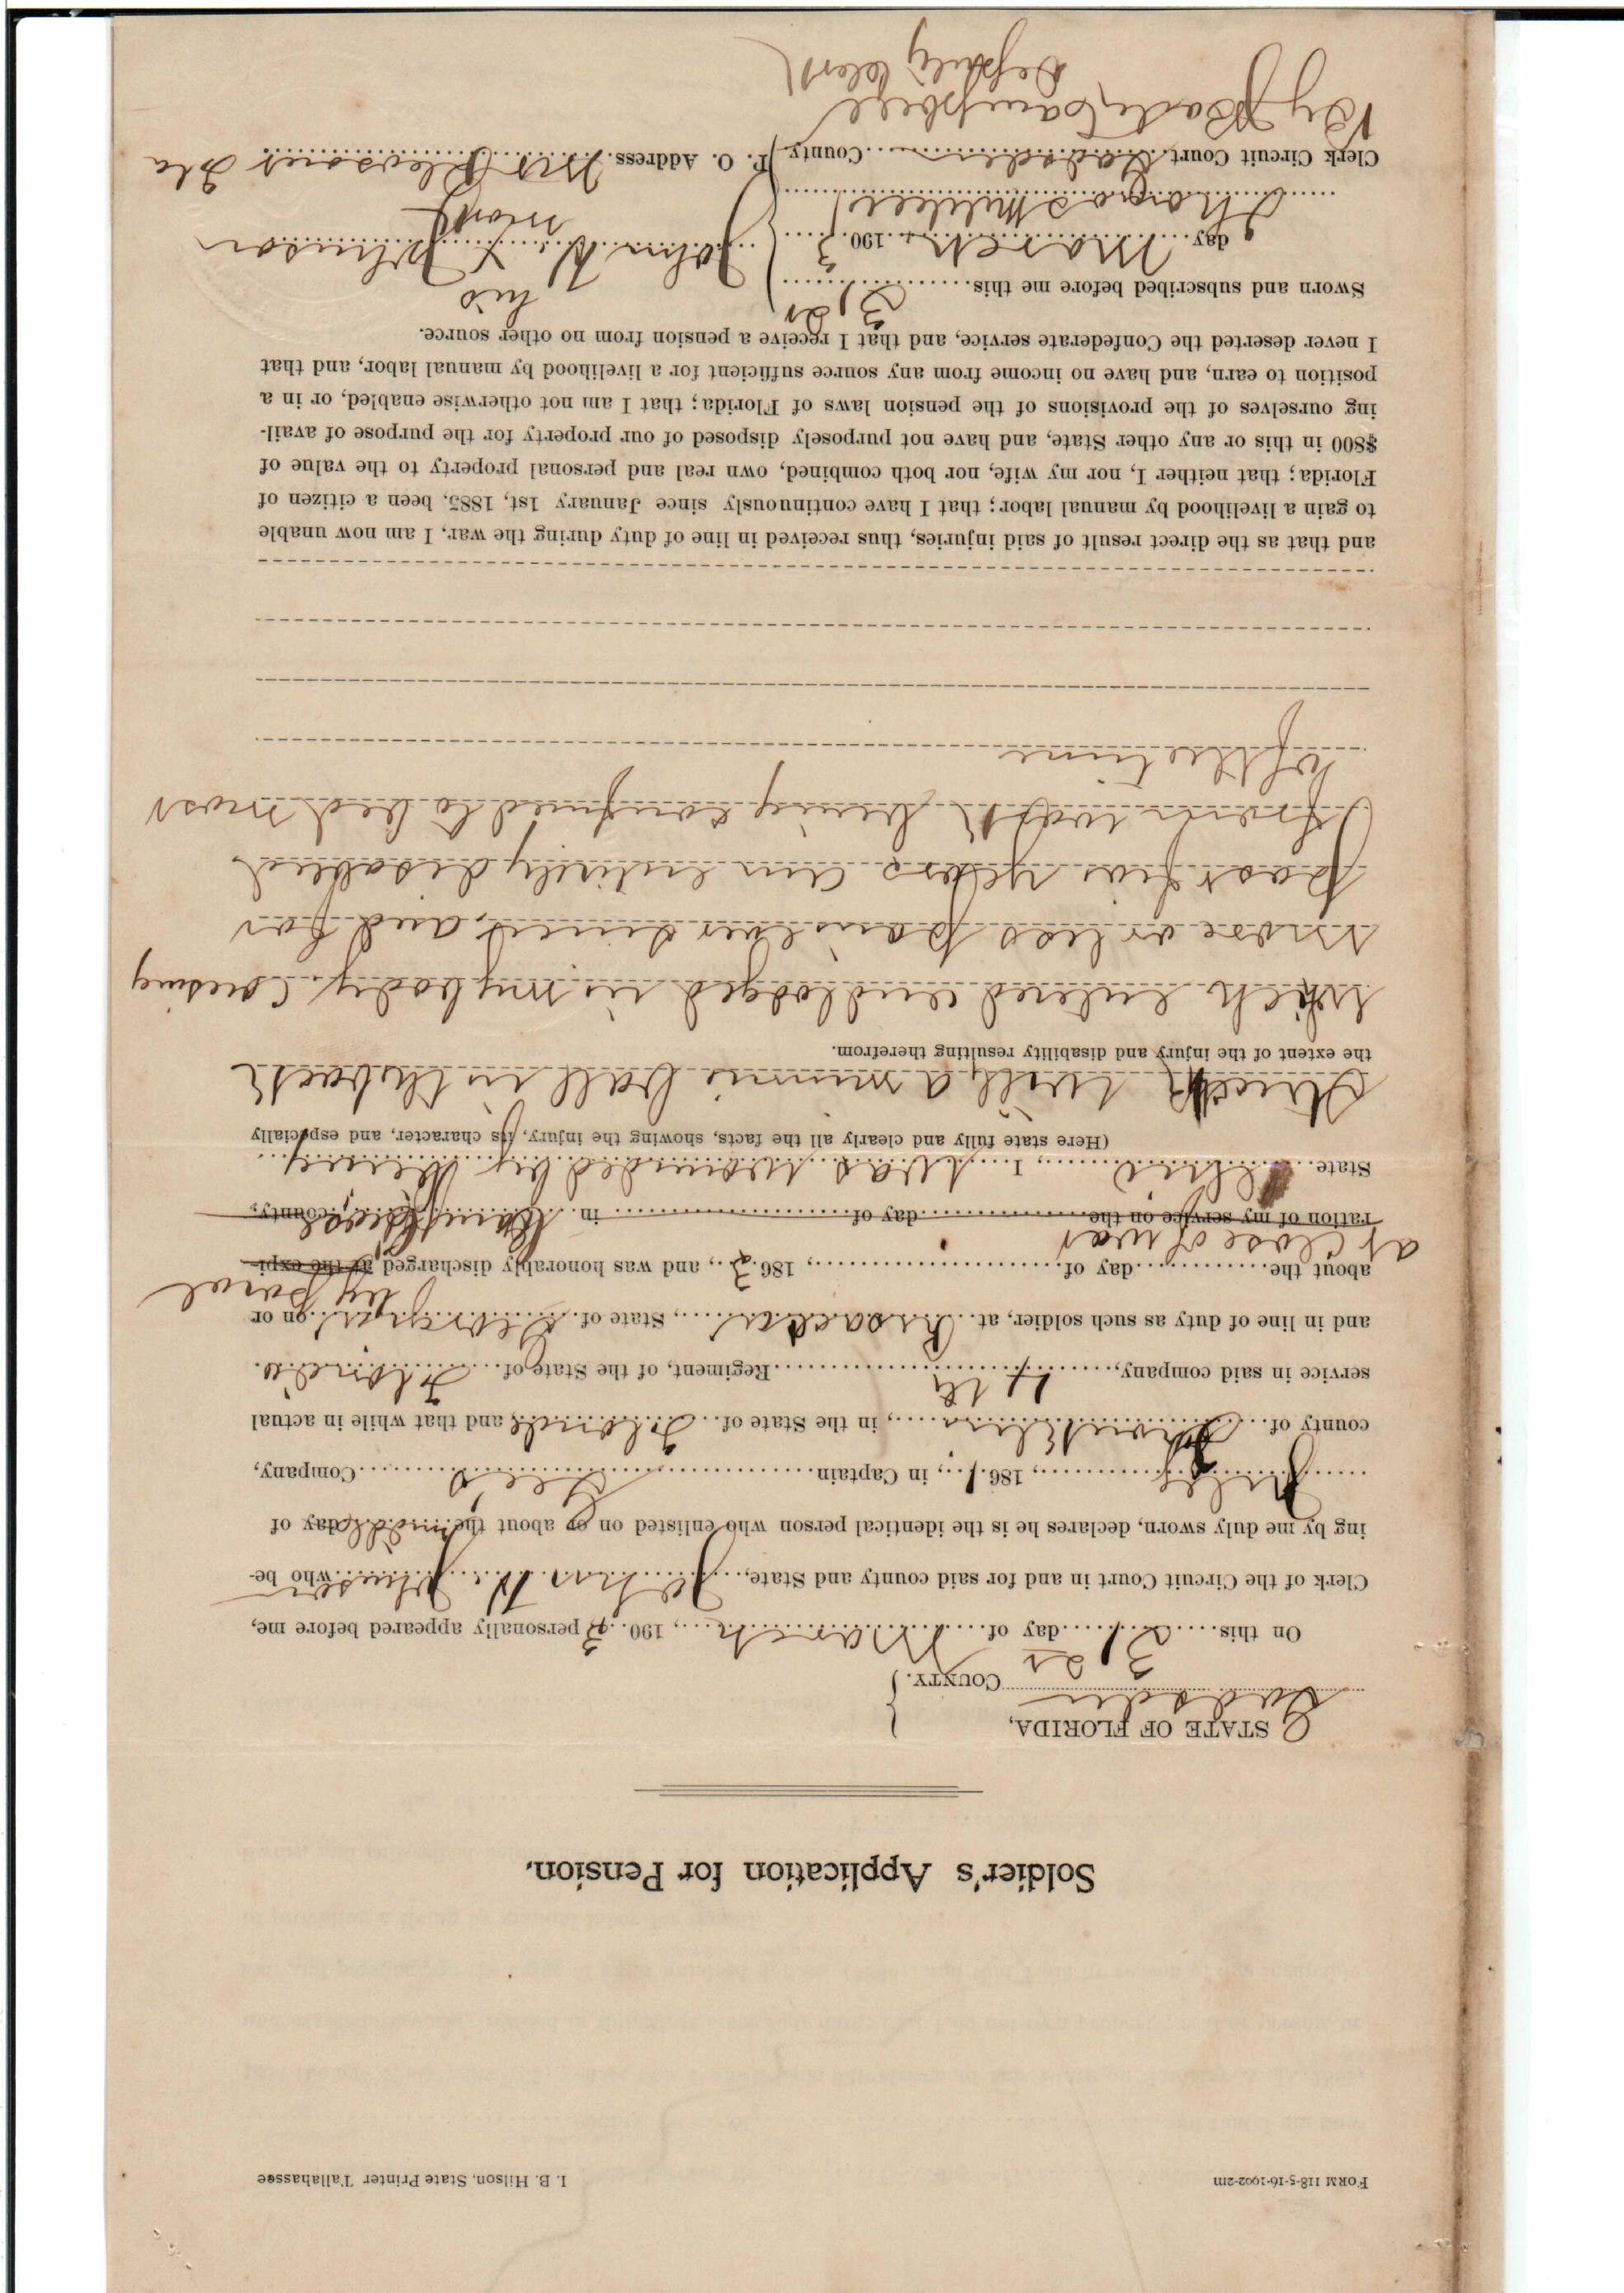 FORM 118-5-16-1902-2m I. B. Hilson, State Printer Tallahassee
Soldier's Application for Pension.
STATE OF FLORIDA,
Gadsden COUNTY.
On this 31st day of March, 1903, personally appeared before me,
Clerk of the Circuit Court in and for said county and State, John W. Johnson who be-
ing by me duly sworn, declares he is the identical person who enlisted on or about the middle day of
July, 1861, in Captain Gee's Company,
county of Franklin, in the State of Florida, and that while in actual
service in said company, 4th Regiment, of the State of Florida
and in line of duty as such soldier, at Resacca, State of Georgia on or
about the day of, 186, and was honorably discharged, at the expi-
by parol
at close of war
ration of my service on the day of in county,
State, I was wounded by being
(Here state fully and clearly all the facts, showing the injury, its character, and especially
struck with a minnie ball in the back
the extent of the injury and disability resulting therefrom.
which entered and lodged in my body, Causing
more or less pain ever since, and for
past five years am entirely disabled
from work being confined to bed most
of the time
and that as the direct result of said injuries, thus received in line of duty during the war, I am now unable
to gain a livelihood by manual labor; that I have continuously since January 1st, 1885, been a citizen of
Florida; that neither I, nor my wife, nor both combined, own real and personal property to the value of
$800 in this or any other State, and have not purposely disposed of our property for the purpose of avail-
ing ourselves of the provisions of the pension laws of Florida; that I am not otherwise enabled, or in a
position to earn, and have no income from any source sufficient for a livelihood by manual labor, and that
I never deserted the Confederate service, and that I receive a pension from no other source.
Sworn and subscribed before me this 31st his
day March, 1903 John W. X Johnson
mark
Clerk Circuit Court Gadsden County P. O. Address Mt Pleasant Fla
By Campbell
Deputy Clerk